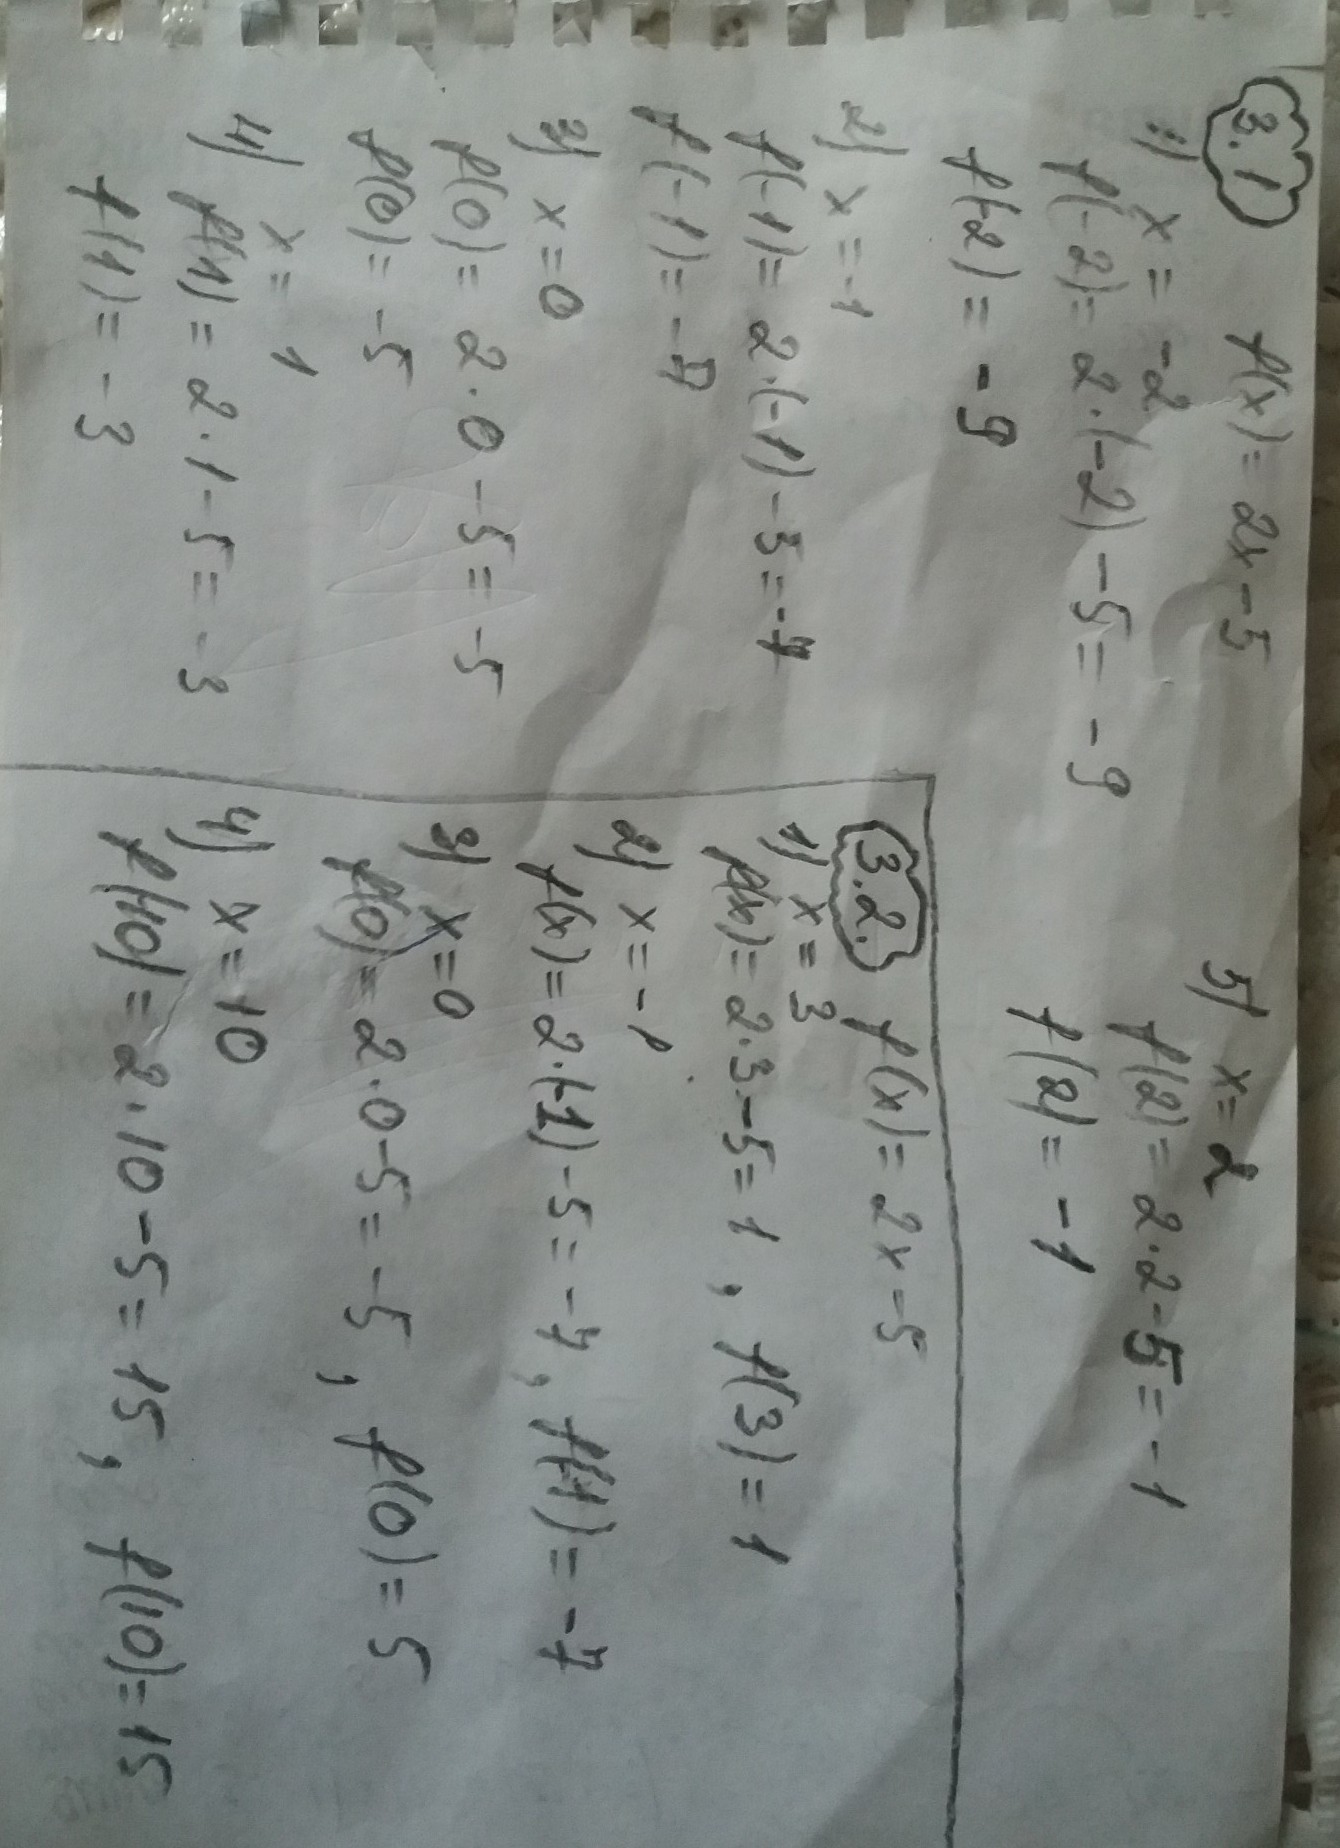 3.1 f(x) = 2x - 5
1) x = -2
f(-2) = 2·(-2) - 5 = -9
f(-2) = -9
2) x = -1
f(-1) = 2·(-1) - 5 = -7
f(-1) = -7
3) x = 0
f(0) = 2·0 - 5 = -5
f(0) = -5
4) x = 1
f(1) = 2·1 - 5 = -3
f(1) = -3
5) x = 2
f(2) = 2·2 - 5 = -1
f(2) = -1
3.2. f(x) = 2x - 5
1) x = 3
f(x) = 2·3 - 5 = 1, f(3) = 1
2) x = -1
f(x) = 2·(-1) - 5 = -7, f(-1) = -7
3) x = 0
f(0) = 2·0 - 5 = -5, f(0) = 5
4) x = 10
f(10) = 2·10 - 5 = 15, f(10) = 15